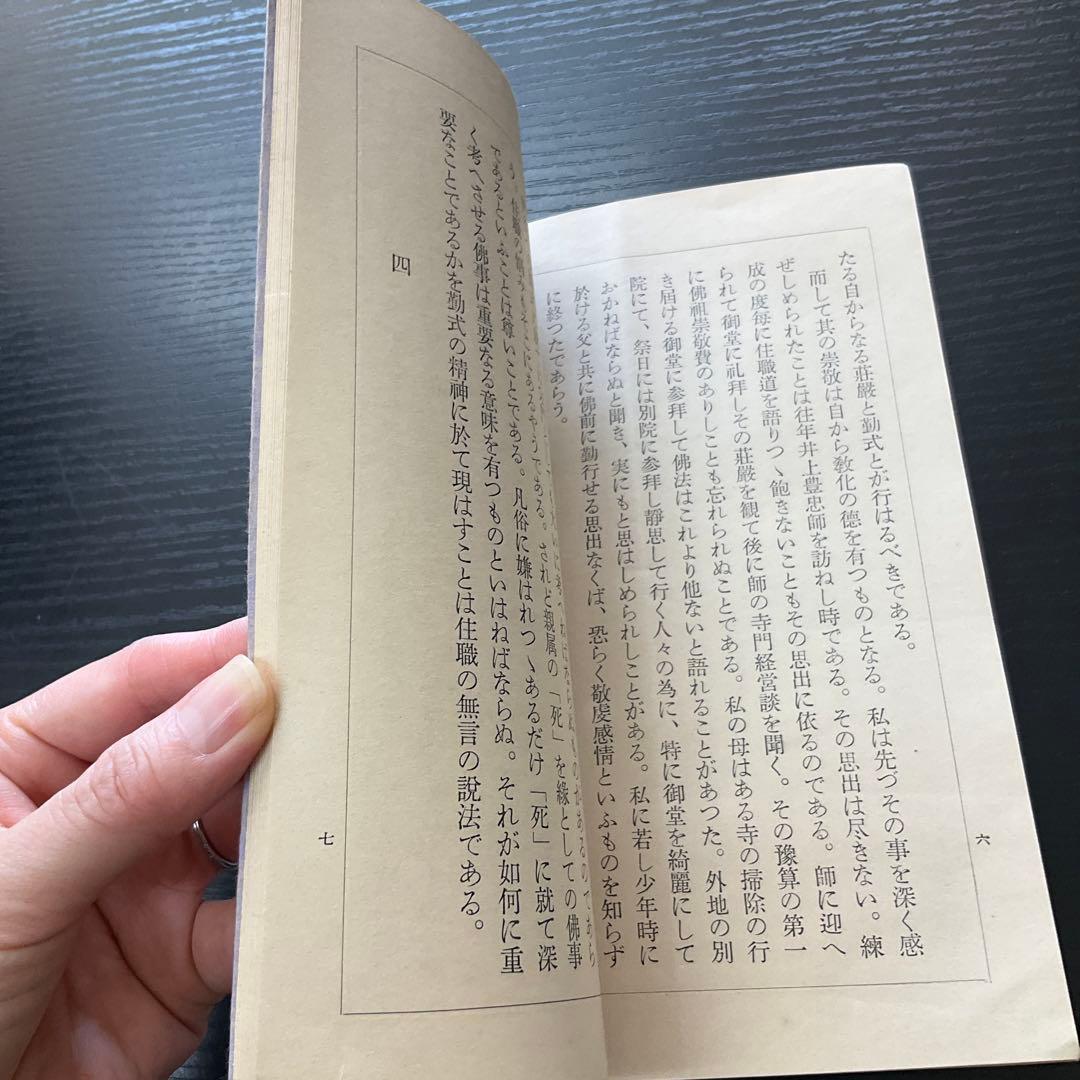 たる自からなる莊嚴と勤式とが行はるべきである。
而して其の崇敬は自から教化の德を有つものとなる。私は先づその事を深く感
ぜしめられたことは往年井上豊忠師を訪ねし時である。その思出は尽きない。練
成の度每に住職道を語りつゝ飽きないこともその思出に依るのである。師に迎へ
られて御堂に礼拜しその莊嚴を観て後に師の寺門経営談を聞く。その豫算の第一
に佛祖崇敬費のありしことも忘れられぬことである。私の母はある寺の掃除の行
き届ける御堂に参拜して佛法はこれより他ないと語れることがあつた。外地の別
院にて、祭日には別院に参拜し靜思して行く人々の為に、特に御堂を綺麗にして
おかねばならぬと聞き、実にもと思はしめられしことがある。私に若し少年時に
於ける父と共に佛前に勤行せる思出なくば、恐らく敬虔感情といふものを知らず
に終つたであらう。
六
であるといふことは尊いことである。凡俗に嫌はれつゝあるだけ「死」に就て深
く考へさせる佛事は重要なる意味を有つものといはねばならぬ。それが如何に重
要なことであるかを勤式の精神に於て現はすことは住職の無言の説法である。
四
七